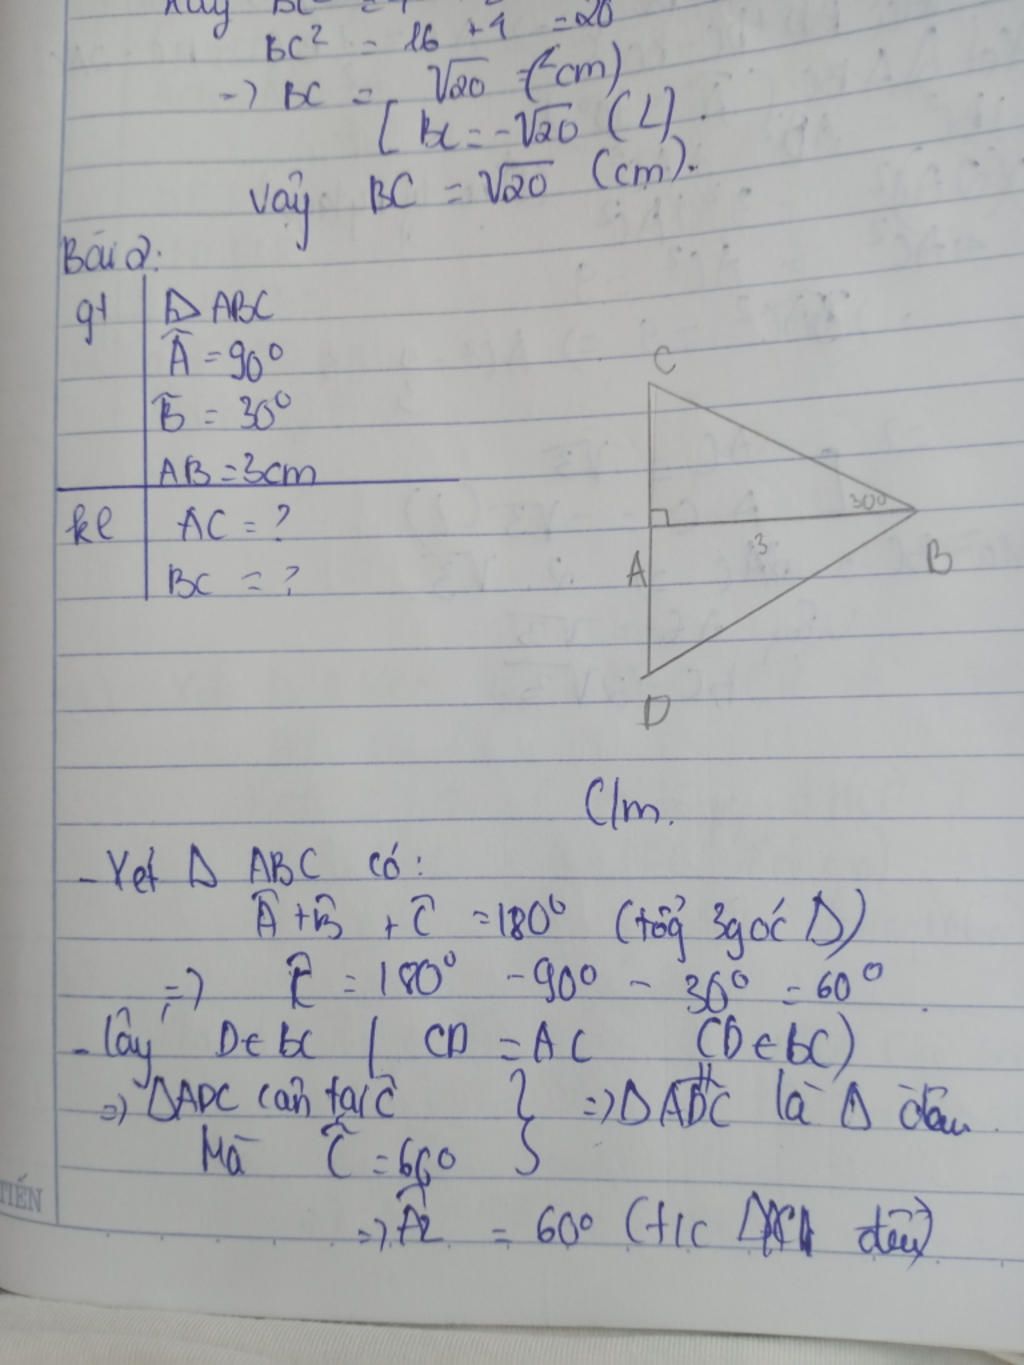 BC² = 16 + 4 = 20
=> BC = √20 (cm)
[ BC = -√20 (L).
Vậy BC = √20 (cm).
Bài 2:
gt
Δ ABC
Â = 90°
B̂ = 30°
AB = 3cm
kl
AC = ?
BC = ?
C
30°
3
A
B
D
C/m.
- Xét Δ ABC có:
Â + B̂ + Ĉ = 180° (tổg 3 góc Δ)
=> Ĉ = 180° - 90° - 30° = 60°
- lấy D∈BC | CD = AC (D∈BC)
=> ΔADC cân tại C } => ΔADC là Δ đều.
Mà Ĉ = 60°
=> Â2 = 60° (t/c đều)
TIẾN